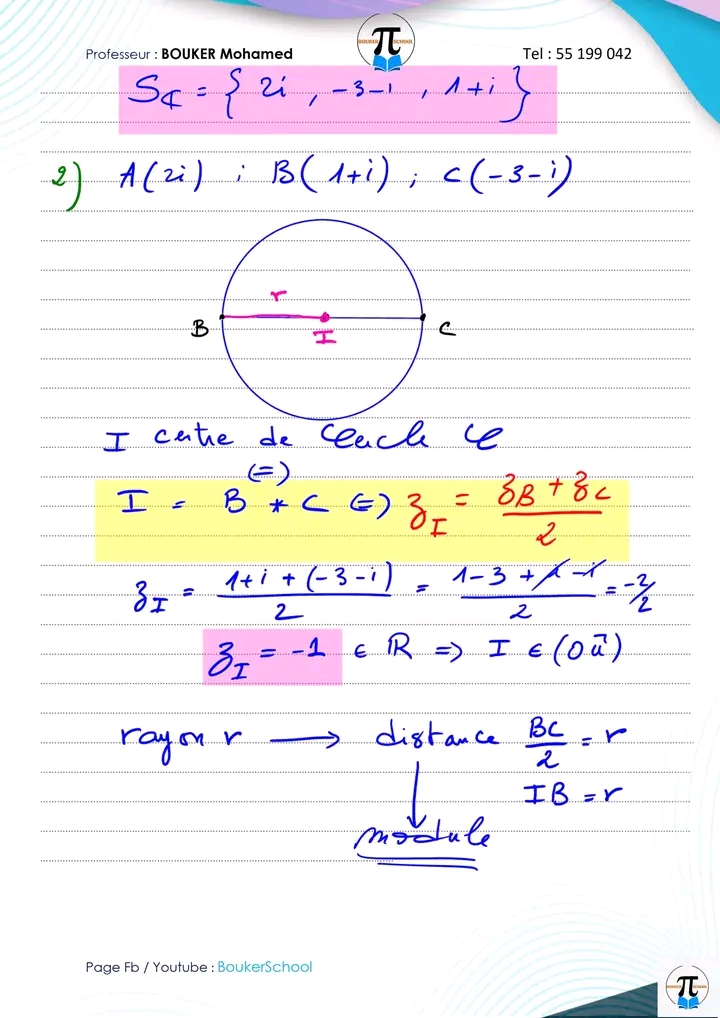 Professeur : BOUKER Mohamed
BOUKER π SCHOOL
Tel : 55 199 042
S_ℂ = { 2i , -3-i , 1+i }
2) A(2i) ; B(1+i) ; C(-3-i)
r
B I C
I centre de Cercle 𝒞
(=)
I = B * C (=) z_I = (z_B + z_C)/2
z_I = (1+i+(-3-i))/2 = (1-3+i-i)/2 = -2/2
z_I = -1 ∈ ℝ => I ∈ (O ū)
rayon r → distance BC/2 = r
IB = r
module
Page Fb / Youtube : BoukerSchool
BOUKER π SCHOOL